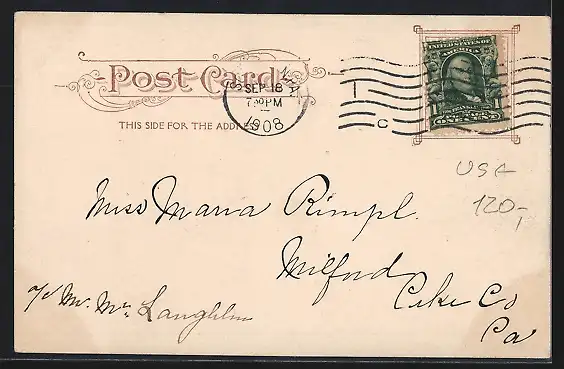 Post Card
THIS SIDE FOR THE ADDRESS
SEP 18
7 30 PM
1908
C
UNITED STATES OF AMERICA
ONE CENT
USA
120,-
Miss Maria Rimpl.
Milford
Pike Co
Pa
c/o Mr. Mc Laughlin